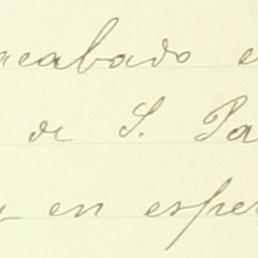 acabado e
de S. Pa
y en esper